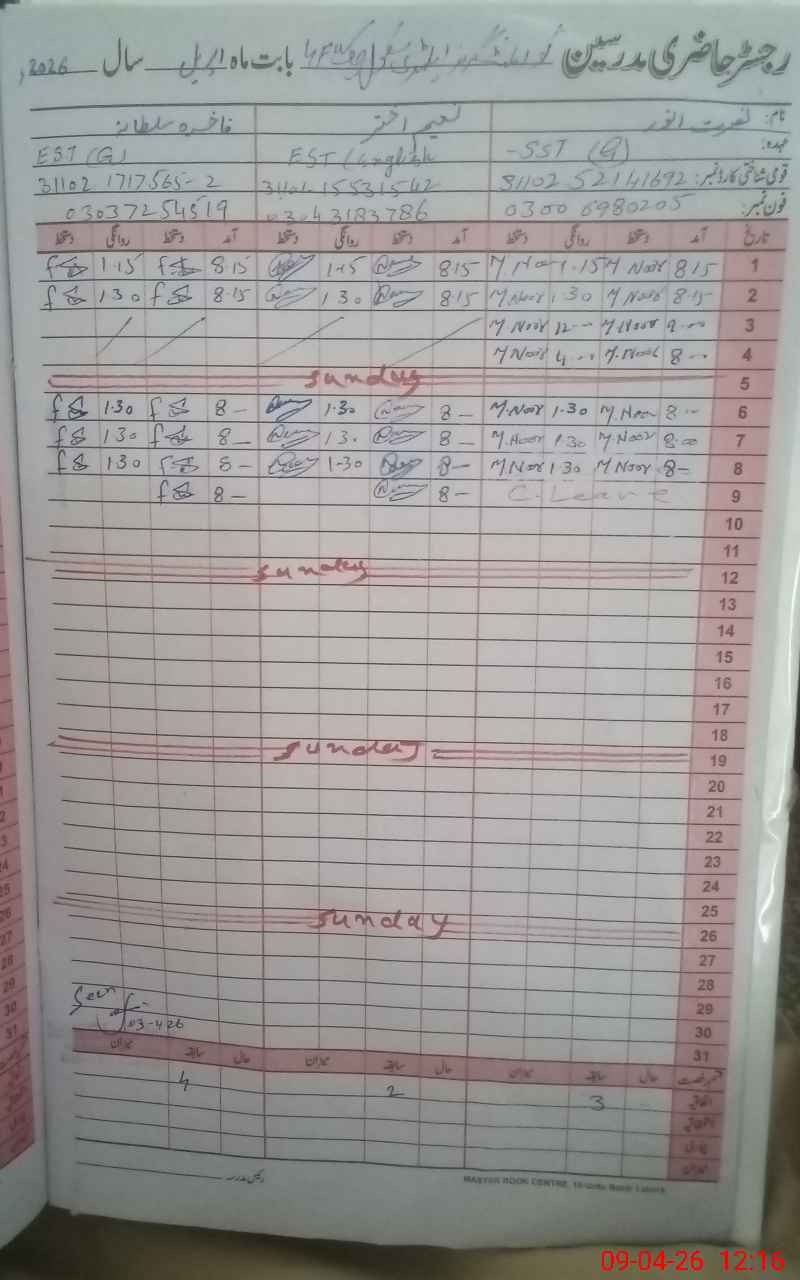 رجسٹر حاضری مدرسین گورنمنٹ گرلز ایلیمنٹری سکول بابت ماہ اپریل سال 2026ء
نام: نصرت انور نعیم اختر فاخرہ سلطانہ
عہدہ: SST (G) EST (English EST (G)
قومی شناختی کارڈ نمبر: 31102 5214169 2 31102 1717565-2
فون نمبر: 0300 6980205 03043183786 03037254519
تاریخ آمد دستخط روانگی دستخط آمد دستخط روانگی دستخط آمد دستخط روانگی دستخط
1 8 15 M Noor 1.15 M Noor 8.15 1-15 8.15 1-15
2 8.15 M Noor 1.30 M Noor 8.15 1 30 8.15 1.30
3 9 -- M Noor 12 -- M Noor
4 8 -- M. Noor 4 -- M Noor
5 Sunday
6 8 -- M. Noor 1-30 M. Noor 8 - 1.30 8 - 1.30
7 8.00 M. Noor 1.30 M. Noor 8 - 1 30 8 - 1 30
8 8 - M Noor 1 30 M. Noor 8 - 1-30 8 - 1 30
9 C. Leave 8 - 8 -
10
11
12 Sunday
13
14
15
16
17
18
19 Sunday
20
21
22
23
24
25
26 Sunday
27
28
29 Seen
30 03-4 26
31
حال سابقہ میزان حال سابقہ میزان حال سابقہ میزان
اتفاقیہ 3 2 4
بیماری
میزان
رئیس مدرسہ
MASTER BOOK CENTRE, 10-Urdu Bazar Lahore
09-04-26 12:16